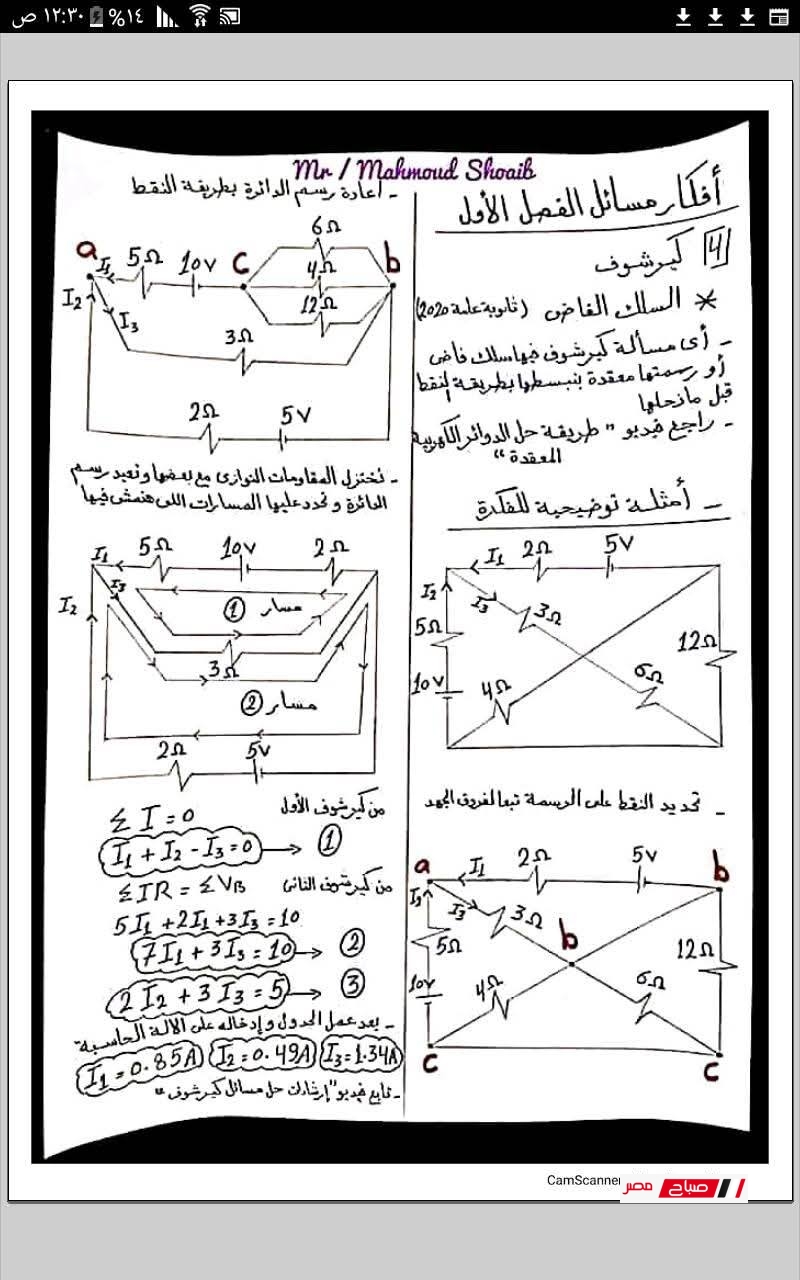 ١٢:٣٠ ص
%١٤
Mr / Mahmoud Shoaib
أفكار مسائل الفصل الأول
4 كيرشوف
* السلك الفاضى (ثانوية عامة 2020)
- أى مسألة كيرشوف فيها سلك فاضى
أو رسمتها معقدة بنبسطها بطريقة النقط
قبل مانحلها
- راجع فيديو " طريقة حل الدوائر الكهربية
المعقدة "
- أمثلة توضيحية للفكرة
I₁ 2Ω 5V
I₂ I₃ 3Ω
5Ω 12Ω
10V 4Ω 6Ω
- تحديد النقط على الرسمة تبعا لفروق الجهد
a I₁ 2Ω 5V b
I₂ I₃ 3Ω b
5Ω 12Ω
10V 4Ω 6Ω
c c
- إعادة رسم الدائرة بطريقة النقط
6Ω
a I₁ 5Ω 10V c 4Ω b
I₂ I₃ 12Ω
3Ω
2Ω 5V
- نختزل المقاومات التوازى مع بعضها ونعيد رسم
الدائرة ونحدد عليها المسارات اللى هنمشى فيها
I₁ 5Ω 10V 2Ω
I₂ I₃ مسار ①
3Ω
مسار ②
2Ω 5V
من كيرشوف الأول ΣI = 0
I₁ + I₂ - I₃ = 0 → ①
من كيرشوف الثانى ΣIR = ΣV_B
5I₁ + 2I₁ + 3I₃ = 10
7I₁ + 3I₃ = 10 → ②
2I₂ + 3I₃ = 5 → ③
- بعد عمل الجدول وإدخاله على الالة الحاسبة
I₁ = 0.85A I₂ = 0.49A I₃ = 1.34A
- تابع فيديو "إرشادات حل مسائل كيرشوف"
CamScanner
صباح مصر